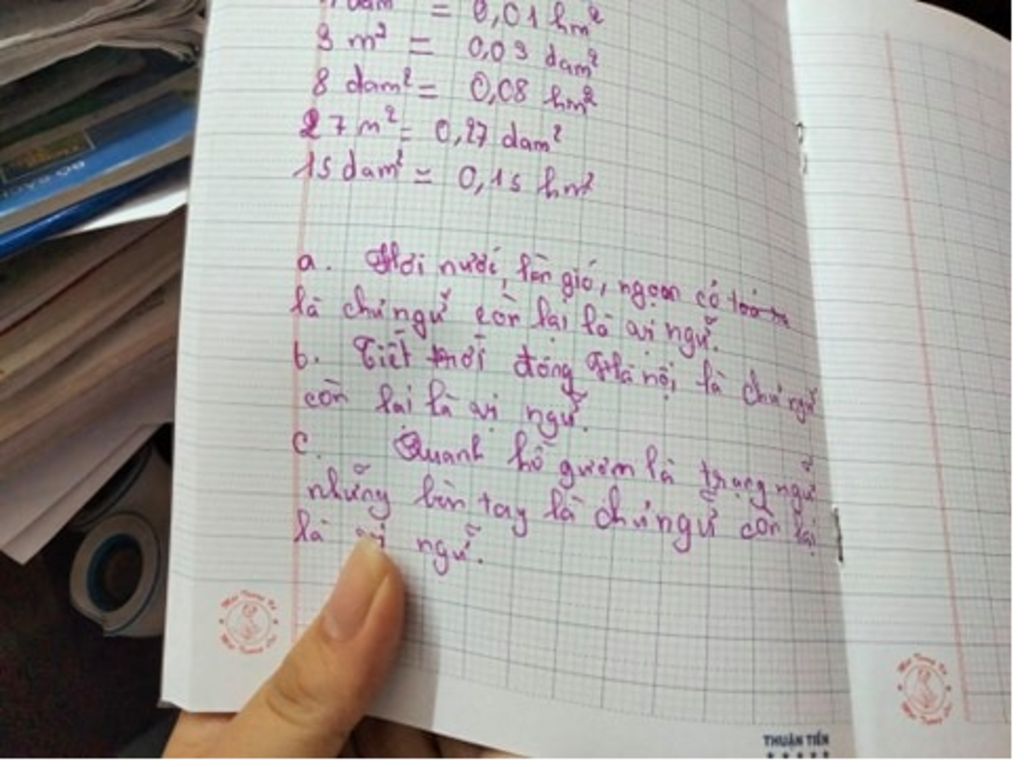 = 0,01 hm²
3 m² = 0,03 dam²
8 dam² = 0,08 hm²
27 m² = 0,27 dam²
15 dam² = 0,15 hm²
a. Hơi nước, làn gió, ngọn cỏ
là chủ ngữ còn lại là vị ngữ.
b. Tiết trời đông Hà nội là chủ ngữ
còn lại là vị ngữ.
c. Quanh hồ gươm là trạng ngữ
những bàn tay là chủ ngữ còn lại
là vị ngữ.
THUẬN TIẾN